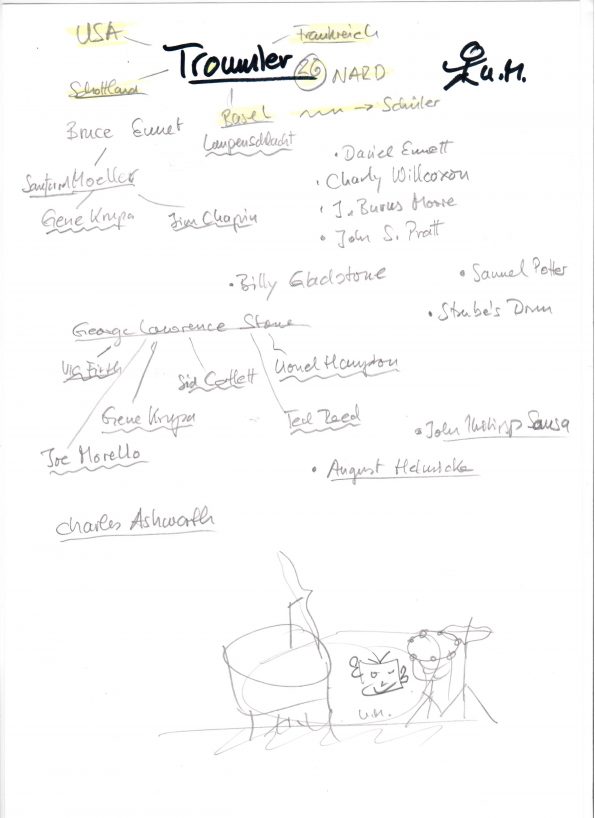 USA
Frankreich
Trommler 26 NARD
U.H.
Schottland
Basel → Schüler
Lampenschlacht
Bruce Emmet
Daniel Emmett
Charly Willcoxon
J. Burns Moore
John S. Pratt
Sanford Moeller
Gene Krupa
Jim Chapin
Billy Gladstone
Samuel Potter
Strube's Drum
George Lawrence Stone
Vic Firth
Sid Catlett
Lionel Hampton
Gene Krupa
Ted Reed
John Philipp Sousa
Joe Morello
August Helmicke
Charles Ashworth
U.H.